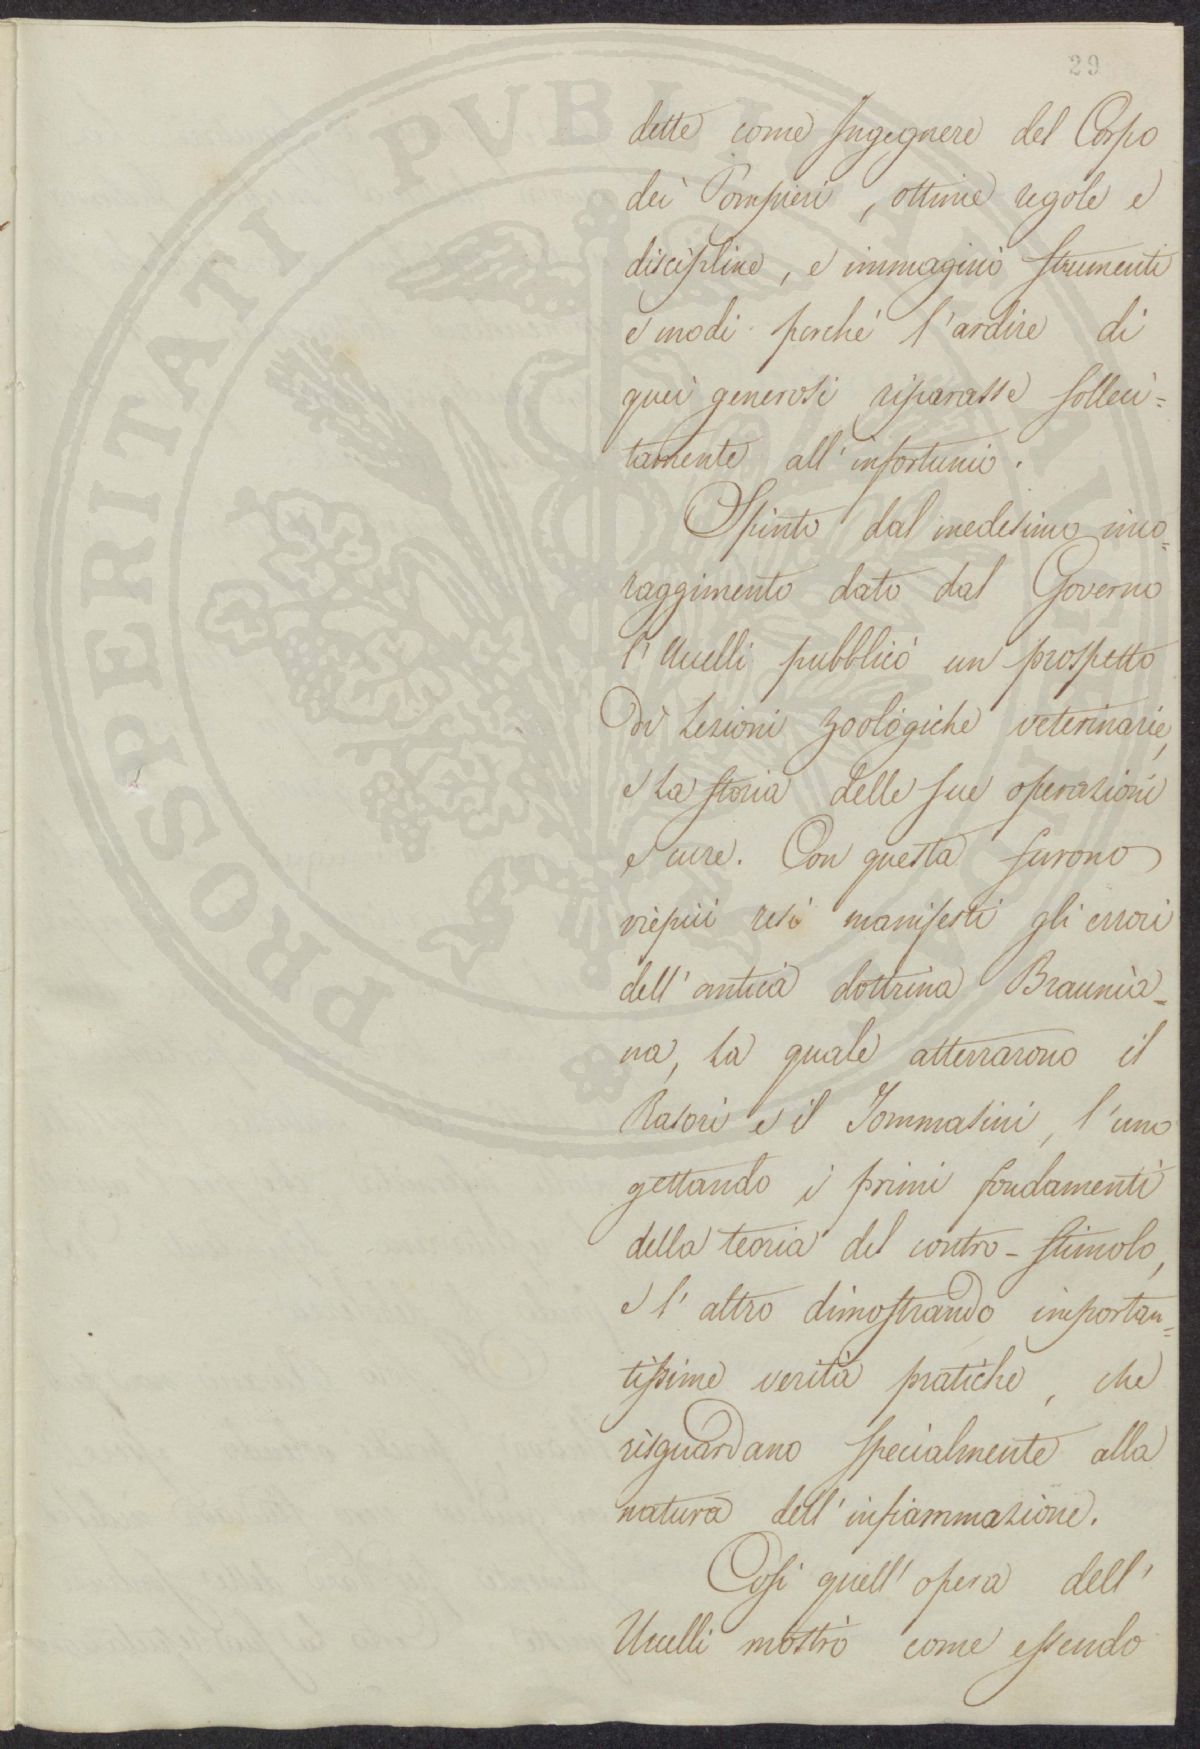 29
dette come Ingegnere del Corpo
dei Pompieri, ottime regole e
discipline, e immaginò strumenti
e modi perchè l'ardire di
quei generosi riparasse solleci=
tamente all'infortunio.
Spinto dal medesimo inco=
raggimento dato dal Governo
l'Uccelli pubblicò un prospetto
di Lezioni zoologiche veterinarie,
e la storia delle sue operazioni
e cure. Con questa furono
viepiù resi manifesti gli errori
dell'antica dottrina Braunia=
na, la quale atterrarono il
Rasori e il Tommasini, l'uno
gettando i primi fondamenti
della teoria del contro-stimolo,
e l'altro dimostrando importan=
tissime verità pratiche, che
risguardano specialmente alla
natura dell'infiammazione.
Così quell'opera dell'
Uccelli mostrò come essendo
PROSPERITATI PVBLICAE